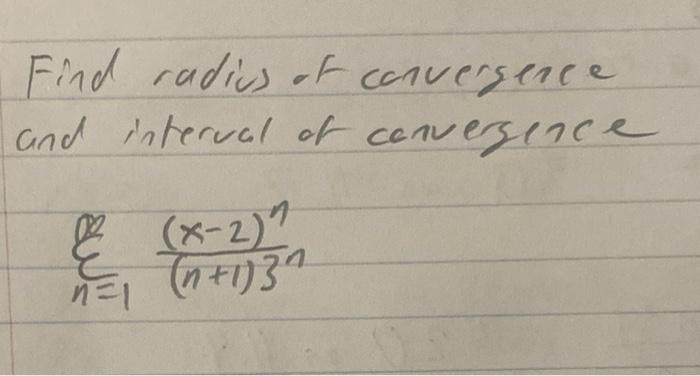 Find radius of convergence
and interval of convergence
∞
Σ (x-2)^n / (n+1)3^n
n=1